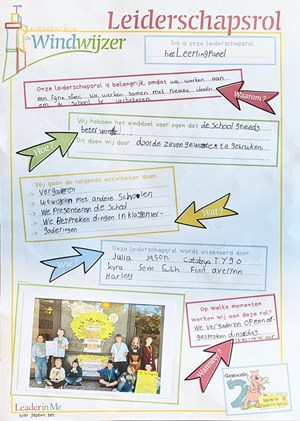 Leiderschapsrol
de Windwijzer
Dit is onze leiderschapsrol:
het Leerlingpanel
Onze leiderschapsrol is belangrijk, omdat we werken aan...
een fijne sfeer. We werken samen met nieuwe ideeën
om de school te verbeteren.
Waarom?
Wij hebben het einddoel voor ogen dat de school steeds
beter wordt.
Dit doen wij door door de zeven gewoonten te gebruiken
Hoe?
Wij gaan de volgende activiteiten doen:
-> Vergaderen
-> Uitwisselen met andere Scholen
-> We Presenteren de School
-> We Bespreken dingen in klassenver-
gaderingen
Wat?
Deze leiderschapsrol wordt uitgevoerd door:
Julia Jason Cataleya Tygo
Kyra Sem Faith Finn Avelynn
Harley
Wie?
Op welke momenten
werken wij aan deze rol?
We vergaderen op een af-
gesproken dinsdag
Wanneer?
Gewoonte
2
Leader in Me